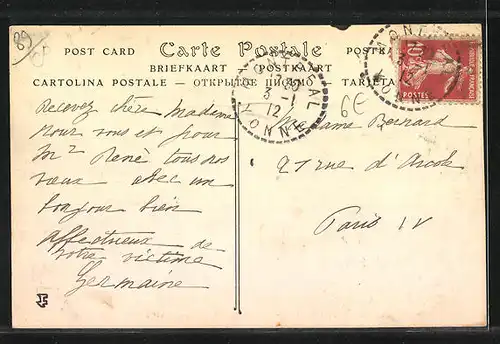 89
POST CARD Carte Postale POSTKA
BRIEFKAART — POSTKAART
CARTOLINA POSTALE — ОТКРЫТОЕ ПИСЬМО — TARJETA
10
POSTES
3 -1
12
YONNE
6E
Recevez chère Madame
Pour vous et pour
Mr René tous nos
vœux avec un
bonjour bien
affectueux de
votre victime
Germaine
Madame Bernard
27 rue d'Arcole
Paris IV